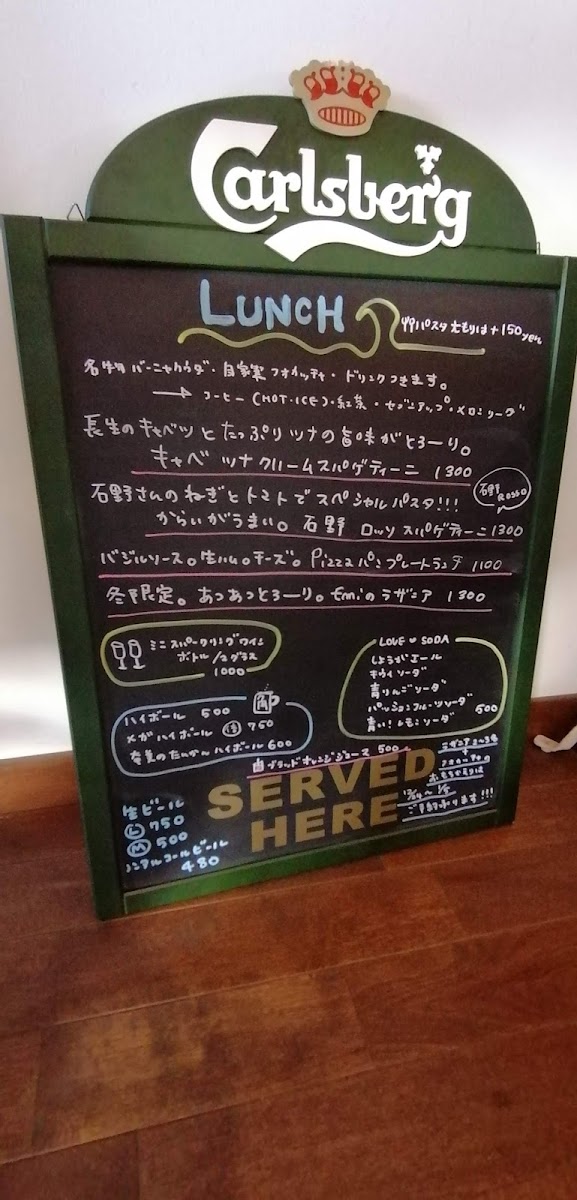 Carlsberg
LUNCH
パスタ大もりは+150yen
名物バーニャカウダ・自家製フォカッチャ・ドリンクつきます。
→ コーヒー(HOT・ICE)・紅茶・セブンアップ・メロンソーダ
長生のキャベツとたっぷりツナの旨味がとろーり。
キャベツナクリームスパゲティーニ 1300
石野さんのねぎとトマトでスペシャルパスタ!!!
石野ROSSO
からいがうまい。石野 ロッソ スパゲティーニ1300
バジルソース。生ハム。チーズ。Pizzaパンプレートランチ 1100
冬限定。あつあつとろーり。Emiのラザニア 1300
ミニスパークリングワイン
ボトル/2グラス
1000
LOVE ♥ SODA
しょうがエール
キウイソーダ
青りんごソーダ
パッションフルーツソーダ
青い!レモンソーダ 500
角
ハイボール 500
メガハイボール 750
奄美のたんかんハイボール 600
ブラッドオレンジジュース 500
SERVED
HERE
生ビール
L 750
M 500
ノンアルコールビール
480
おもちかえりは
12/24〜1/5
ご予約承ります!!!